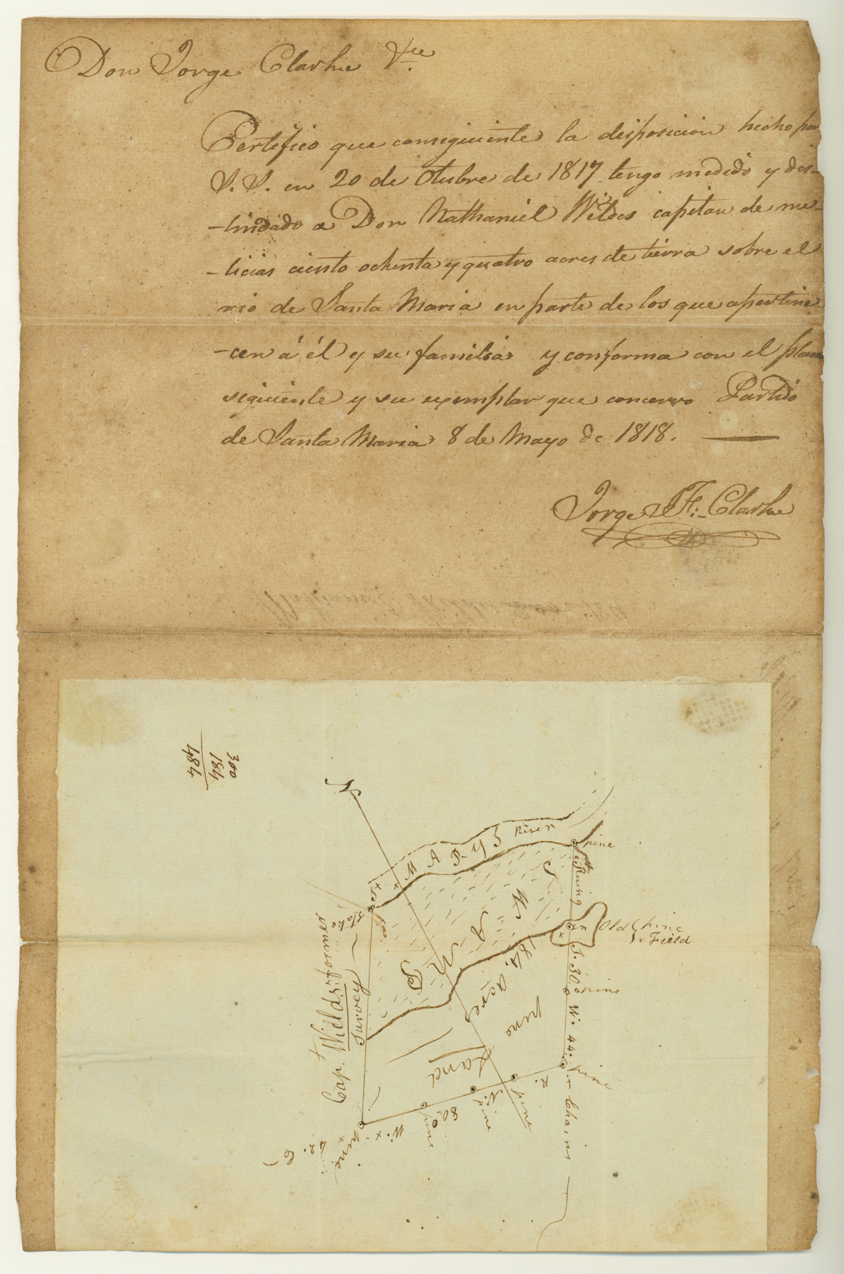 Don Jorge Clarke &ce
Certifico que consiguiente la disposicion hecho por
S. S. en 20 de Otubre de 1817 tengo medido y des-
-lindado a Don Nathaniel Wildes capitan de mi-
-licias ciento ochenta y quatro acres de tierra sobre el
rio de Santa Maria en parte de los que apertine-
-cen á él y su familia y conforma con el plan
siguiente y su exemplar que concervo Partido
de Santa Maria 8 de Mayo de 1818.
Jorge J. F. Clarke
300
184
484
N
St Marys River
pine
Old Field
pine
Swamp
184 Acres
pine Land
S. 30° W. 44 Chains
pine
pine
N. 80° W. 42. C
pine
pine
pine
pine
Stake
Cap.t Wilds's former
Survey